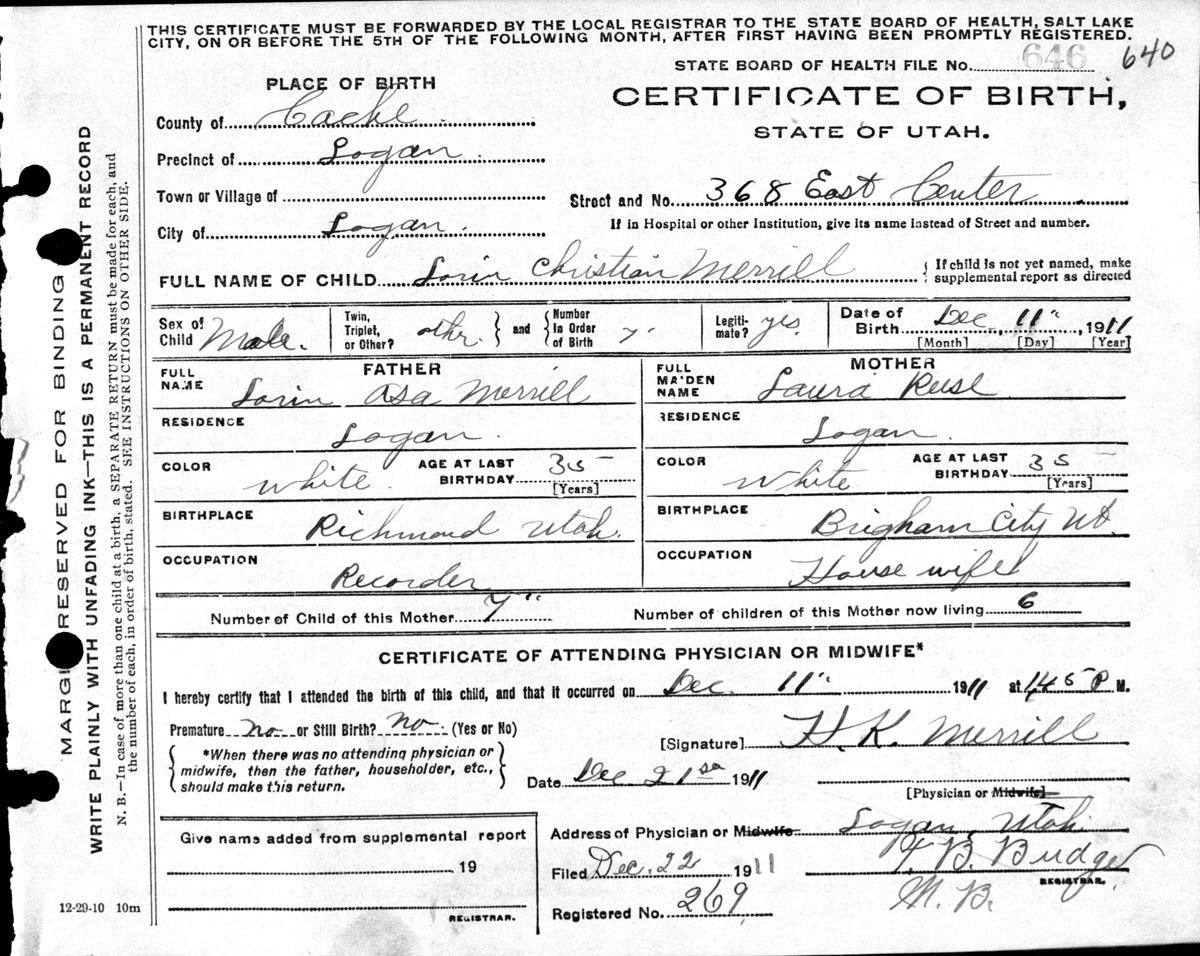 THIS CERTIFICATE MUST BE FORWARDED BY THE LOCAL REGISTRAR TO THE STATE BOARD OF HEALTH, SALT LAKE
CITY, ON OR BEFORE THE 5TH OF THE FOLLOWING MONTH, AFTER FIRST HAVING BEEN PROMPTLY REGISTERED.
STATE BOARD OF HEALTH FILE No. 646 640
PLACE OF BIRTH
CERTIFICATE OF BIRTH,
STATE OF UTAH.
County of Cache
Precinct of Logan
Town or Village of
Street and No. 368 East Center
City of Logan
If in Hospital or other Institution, give its name instead of Street and number.
FULL NAME OF CHILD Lorin Christian Merrill { If child is not yet named, make
supplemental report as directed
Sex of Child Male. Twin, Triplet, or Other? other } and { Number In Order of Birth 7. Legiti- mate? yes. Date of Birth Dec 11", 1911
[Month] [Day] [Year]
FATHER MOTHER
FULL NAME Lorin Asa Merrill FULL MAIDEN NAME Laura
RESIDENCE Logan. RESIDENCE Logan
COLOR White. AGE AT LAST BIRTHDAY 35 [Years] COLOR White AGE AT LAST BIRTHDAY 35 [Years]
BIRTHPLACE Richmond Utah. BIRTHPLACE Brigham City Ut.
OCCUPATION Recorder OCCUPATION House wife
Number of Child of this Mother 7" Number of children of this Mother now living 6
CERTIFICATE OF ATTENDING PHYSICIAN OR MIDWIFE*
I hereby certify that I attended the birth of this child, and that it occurred on Dec. 11" 1911 at 1.45 P M.
Premature no or Still Birth? no. (Yes or No)
[Signature] H. K. Merrill
*When there was no attending physician or
midwife, then the father, householder, etc.,
should make this return.
Date Dec 21 1911
[Physician or Midwife]
Give name added from supplemental report
19
REGISTRAR.
Address of Physician or Midwife Logan, Utah.
Filed Dec. 22 1911 T. B. Budge
REGISTRAR.
M. D.
Registered No. 269
12-29-10 10m
MARGIN RESERVED FOR BINDING
WRITE PLAINLY WITH UNFADING INK—THIS IS A PERMANENT RECORD
N. B.—In case of more than one child at a birth, a SEPARATE RETURN must be made for each, and
the number of each, in order of birth, stated. SEE INSTRUCTIONS ON OTHER SIDE.